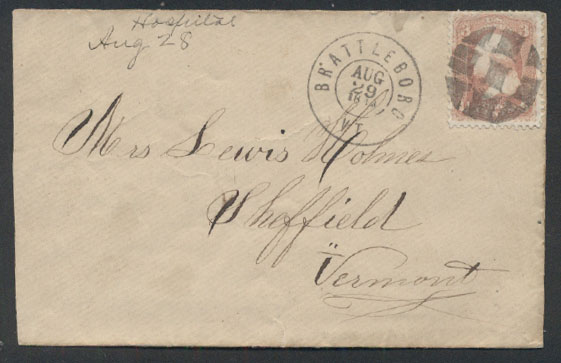 Hospital
Aug 28
BRATTLEBORO
AUG
29
VT
Mrs Lewis Holmes
Sheffield
Vermont